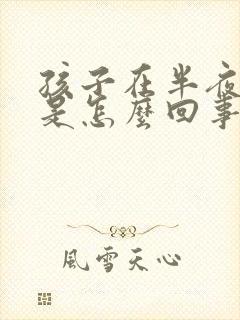 孩子在半夜
是怎麼回事
風雪天心